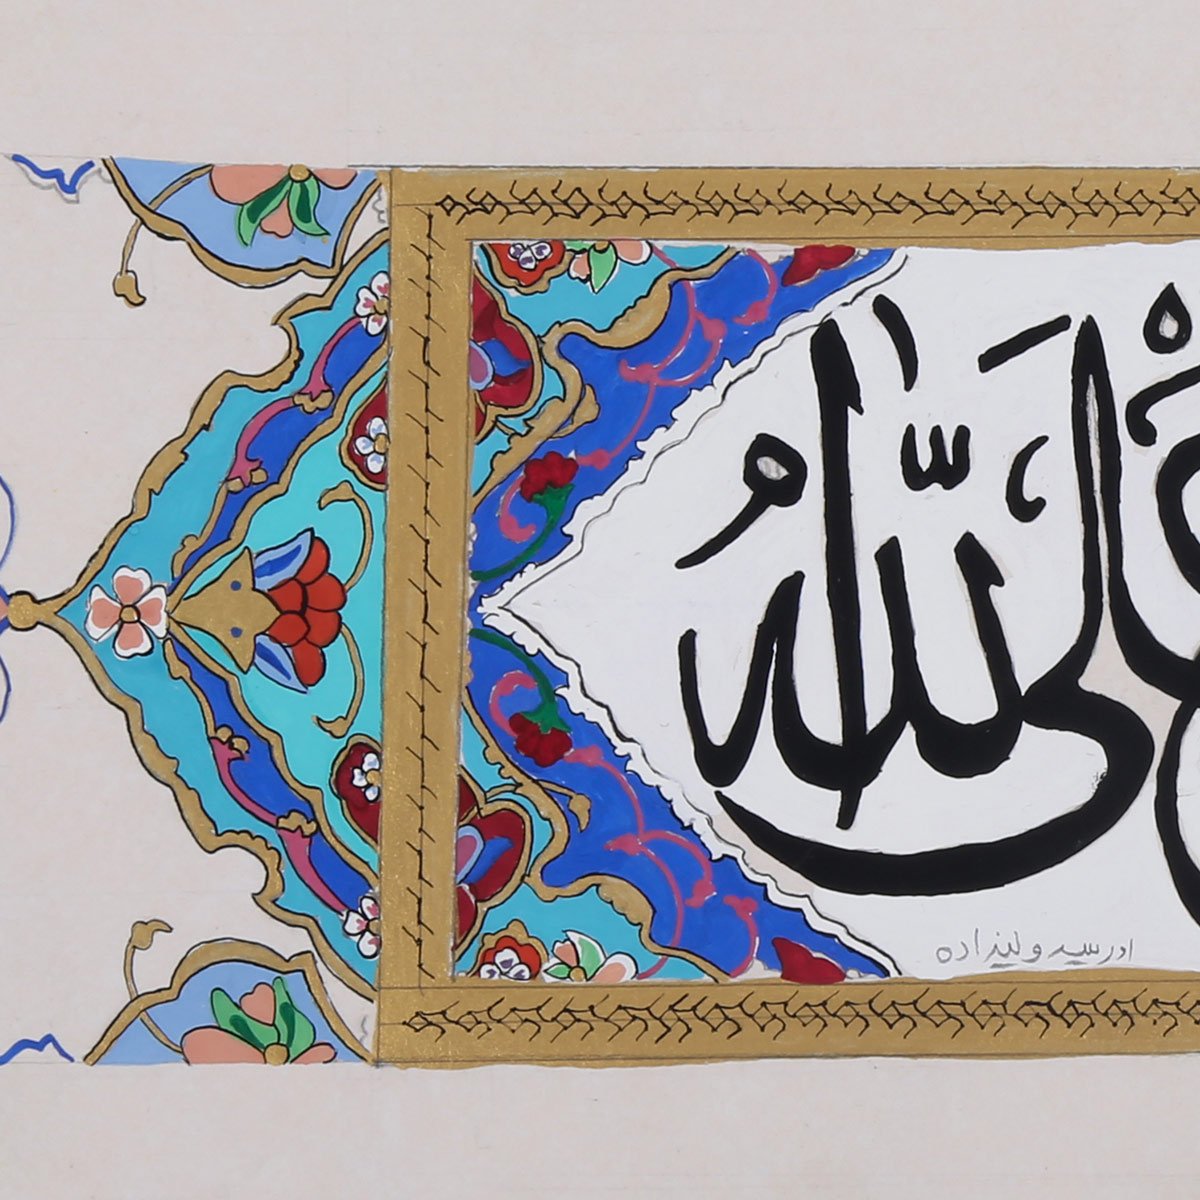 على اللهُ
ادر سيد وليزاده